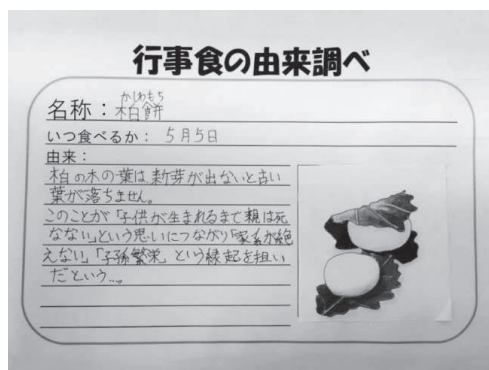 行事食の由来調べ
かしわもち
名称：柏餅
いつ食べるか：5月5日
由来：
柏の木の葉は新芽が出ないと古い
葉が落ちません。
このことが「子供が生まれるまで親は死
なない」という思いにつながり「家系が絶
えない」「子孫繁栄」という縁起を担い
だという…。